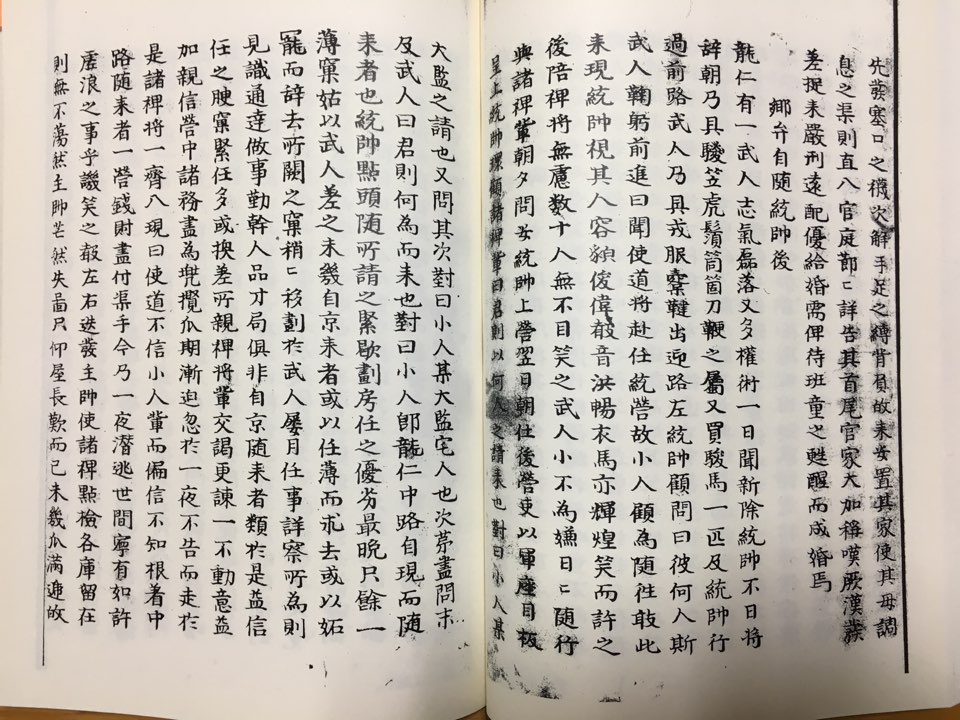 先發塞口之機次解手足之縛背負故來安置其家使其母調
息之渠則直入官庭節〻詳告其首尾官家大加稱嘆厥漢發
差捉来嚴刑遠配優給婚需俾待班童之甦醒而成婚焉
鄉弁自随統帥後
龍仁有一武人志氣磊落又多權術一日聞新除統帥不日將
辞朝乃具驂笠虎鬚筒箇刀鞭之屬又買駿馬一匹及統帥行
過前路武人乃具戎服櫜鞬出迎路左統帥顧問曰彼何人斯
武人鞠躬前進曰聞使道將赴任統營故小人願為随徃敢此
来現統帥視其人容貌俊偉敲音洪暢衣馬亦輝煌笑而許之
後陪裨將無慮数十人無不目笑之武人小不為嫌日〻随行
與諸裨軰朝夕問安統帥上營翌日朝仕後營吏以軍座目板
呈上統帥環顧諸裨軰曰君則以何人之請来也對曰小人某
大監之請也又問其次對曰小人某大監宅人也次苐盡問末
及武人曰君則何為而来也對曰小人即龍仁中路自現而随
来者也統帥點頭随所請之緊歇劃房任之優劣最晩只餘一
薄窠姑以武人差之未幾自京来者或以任薄而求去或以妬
寵而辞去所闕之窠稍〻移劃於武人屢月任事詳察所為則
見識通達做事勤幹人品才局俱非自京随来者類於是益信
任之腴窠緊任多或換差所親裨將軰交謁更諫一不動意益
加親信營中諸務盡為兜攬瓜期漸迫忽於一夜不告而走於
是諸裨將一齊入現曰使道不信小人軰而偏信不知根着中
路随来者一營錢財盡付渠手今乃一夜潜逃世間寧有如許
虛浪之事乎譏笑之敲左右迭發主帥使諸裨點檢各庫留在
則無不蕩然主帥芒然失啚只仰屋長歎而已未幾瓜滿逓故